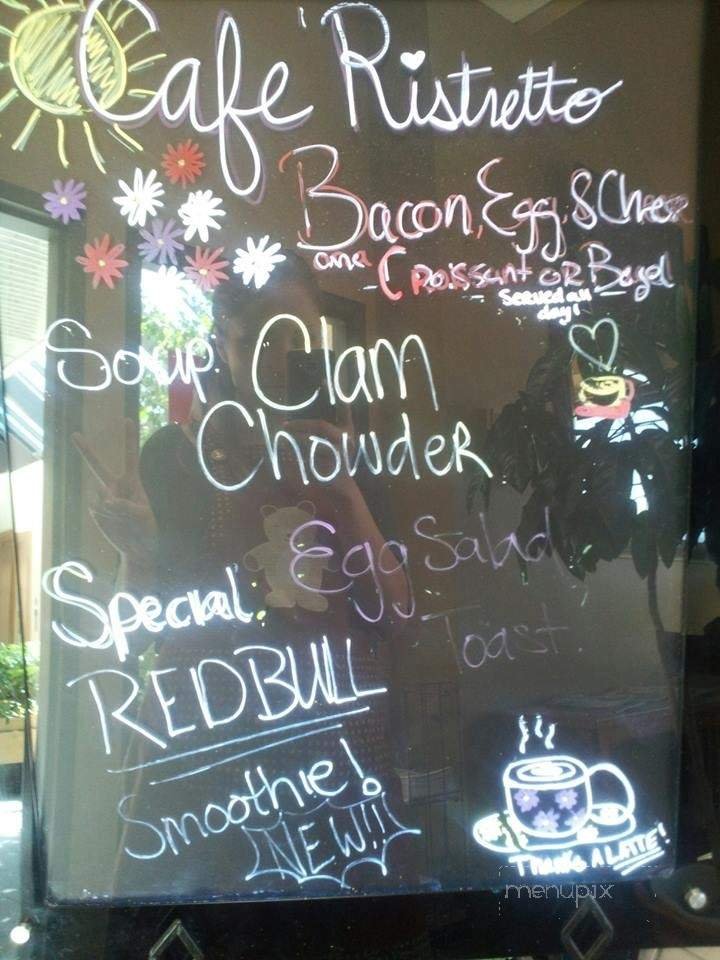 Cafe Ristretto
Bacon, Egg, & Cheese
on a Croissant or Bagel
Served all
day!
Soup: Clam
Chowder
Special: Egg Salad
Toast.
REDBULL
Smoothie!
NEW!!
THANKS A LATTE!
menupix